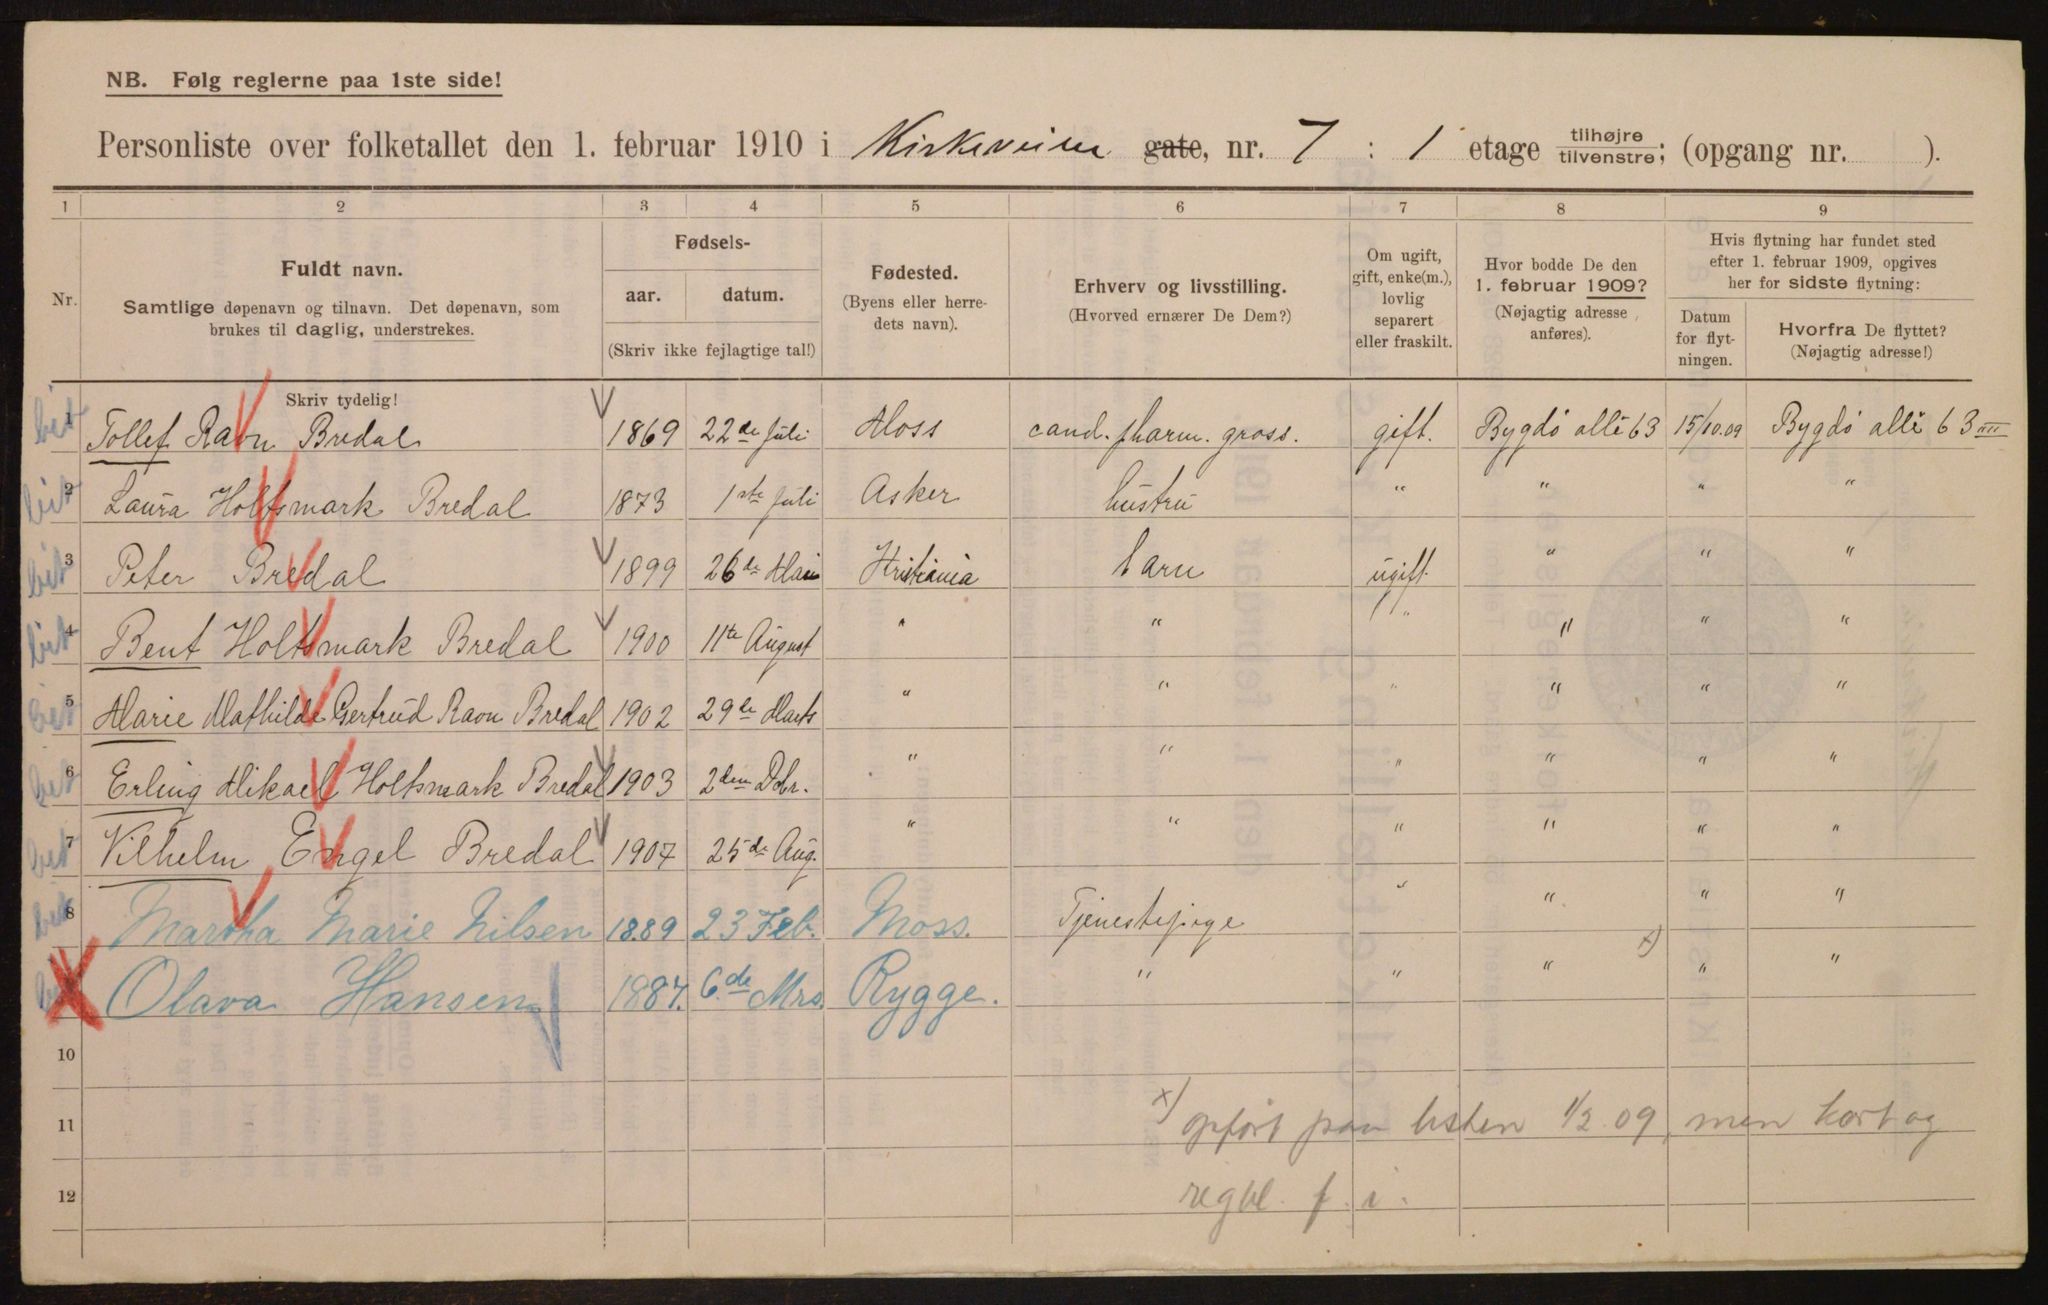 NB. Følg reglerne paa 1ste side!
Personliste over folketallet den 1. februar 1910 i Kirkeveien gate, nr. 7 : 1 etage tilhøjre tilvenstre; (opgang nr. ).
1 2 3 4 5 6 7 8 9
Nr.
Fuldt navn.
Samtlige døpenavn og tilnavn. Det døpenavn, som
brukes til daglig, understrekes.
Fødsels-
aar. datum.
(Skriv ikke fejlagtige tal!)
Fødested.
(Byens eller herre-
dets navn).
Erhverv og livsstilling.
(Hvorved ernærer De Dem?)
Om ugift,
gift, enke(m.),
lovlig
separert
eller fraskilt.
Hvor bodde De den
1. februar 1909?
(Nøjagtig adresse
anføres).
Hvis flytning har fundet sted
efter 1. februar 1909, opgives
her for sidste flytning:
Datum
for flyt-
ningen.
Hvorfra De flyttet?
(Nøjagtig adresse!)
Skriv tydelig!
1 Tollef Ravn Bredal 1869 22de Juli Moss cand. pharm. gross. gift. Bygdö allé 63 15/10.09 Bygdö allé 63 IIII
2 Laura Holtsmark Bredal 1873 1ste Juli Asker hustru " " " "
3 Peter Bredal 1899 26de Mai Kristiania barn ugift. " " "
4 Bent Holtsmark Bredal 1900 11te August " " " " " "
5 Marie Mathilde Gertrud Ravn Bredal 1902 29de Marts " " " " " "
6 Erling Mikael Holtsmark Bredal 1903 2den Dcbr. " " " " " "
7 Vilhelm Engel Bredal 1907 25de Aug. " " " " " "
8 Martha Marie Nilsen 1889 23 Feb. Moss. Tjenestepige " " " "
Olava Hansen 1887. 6.de Mrs. Rygge. " " " x) " "
10
11 x) opført paa listen 1/2 09, men kort og
12 regbl. f. i.